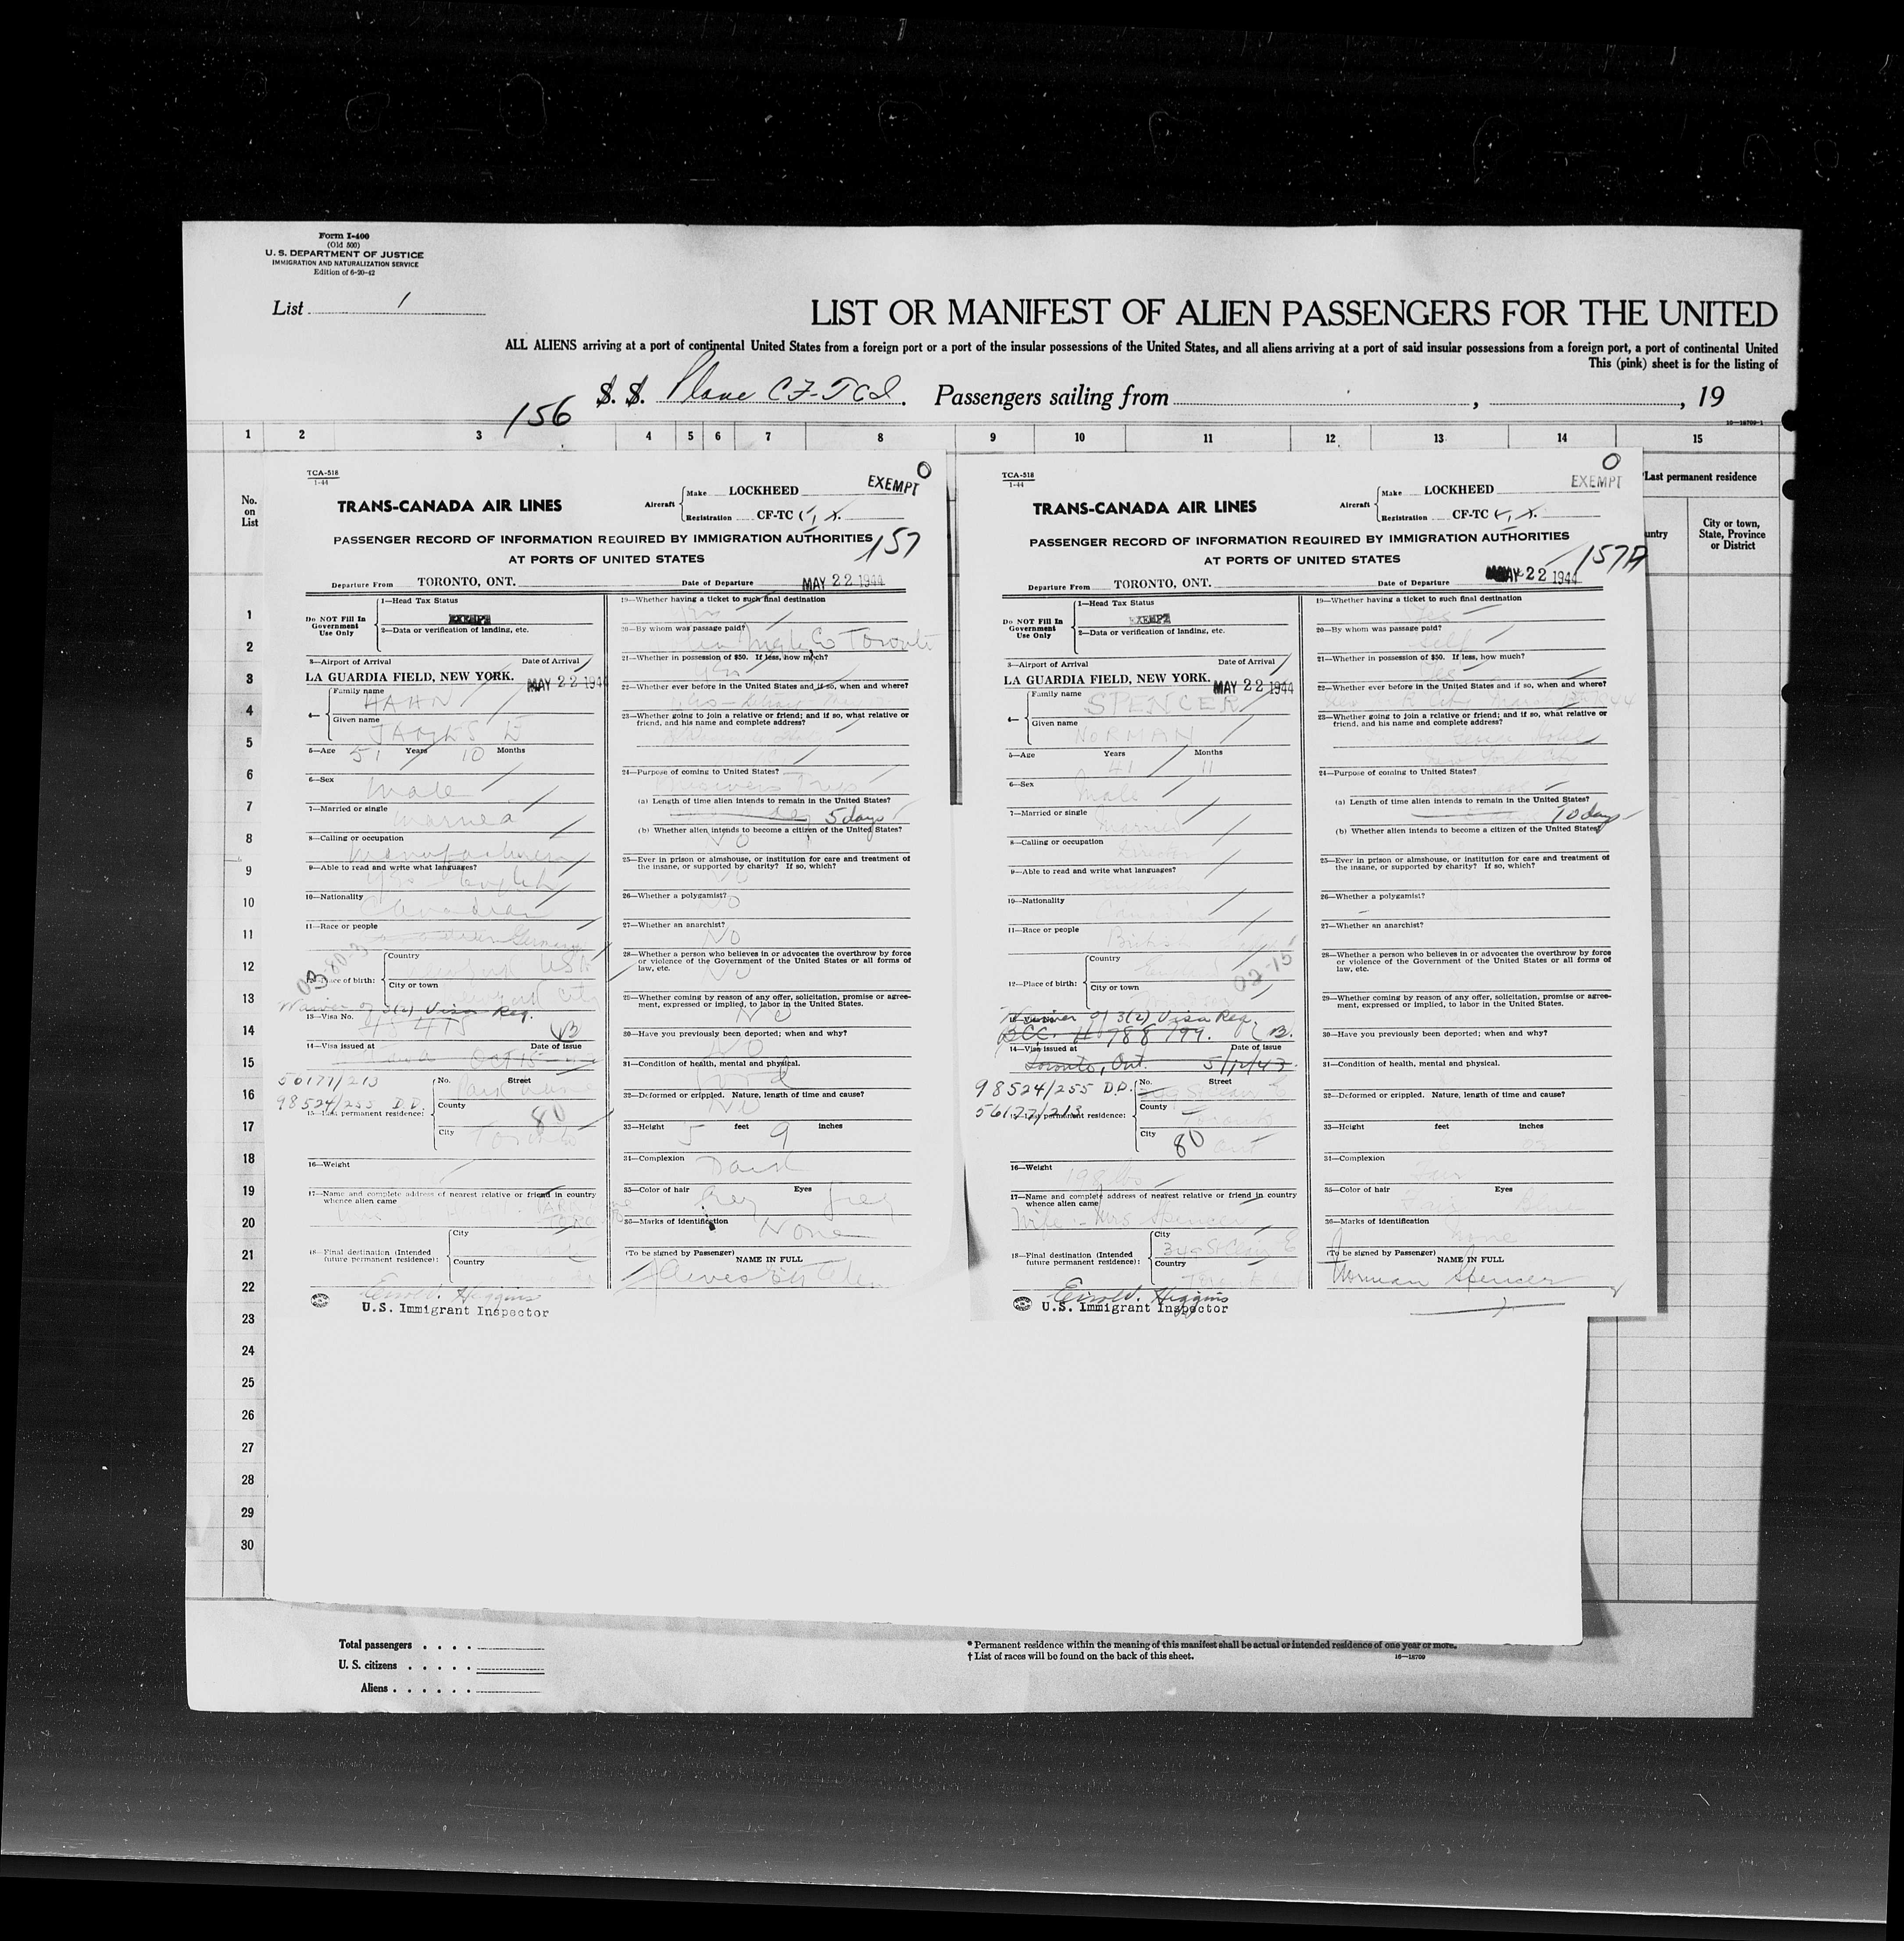 Form I-400
(Old 500)
U. S. DEPARTMENT OF JUSTICE
IMMIGRATION AND NATURALIZATION SERVICE
Edition of 6-20-42
List 1
LIST OR MANIFEST OF ALIEN PASSENGERS FOR THE UNITED
ALL ALIENS arriving at a port of continental United States from a foreign port or a port of the insular possessions of the United States, and all aliens arriving at a port of said insular possessions from a foreign port, a port of continental United
This (pink) sheet is for the listing of
S. S. Plane Passengers sailing from , , 19
156
16—18709-1
1 2 3 4 5 6 7 8 9 10 11 12 13 14 15
No.
on
List
*Last permanent residence
City or town,
State, Province
or District
TCA-518
1-44
TRANS-CANADA AIR LINES
Aircraft
Make LOCKHEED
Registration CF-TC
EXEMPT
0
PASSENGER RECORD OF INFORMATION REQUIRED BY IMMIGRATION AUTHORITIES
157
AT PORTS OF UNITED STATES
Departure From TORONTO, ONT. Date of Departure MAY 22 1944
Do NOT Fill In
Government
Use Only
1—Head Tax Status
EXEMPT
2—Data or verification of landing, etc.
3—Airport of Arrival Date of Arrival
LA GUARDIA FIELD, NEW YORK. MAY 22 1944
4—
Family name
HAHN
Given name
JAMES E
5—Age 51 Years 10 Months
6—Sex
Male
7—Married or single
Married
8—Calling or occupation
Manufacturer
9—Able to read and write what languages?
Yes English
10—Nationality
Canadian
11—Race or people
German
12—Place of birth:
Country
USA
City or town
New York City
Waiver of 3(2) Visa Req.
13—Visa No.
14—Visa issued at Date of issue
56177/213
98524/255 D.D.
15—Last permanent residence:
No. Street
County
80
City
Toronto
16—Weight
17—Name and complete address of nearest relative or friend in country
whence alien came
18—Final destination (Intended
future permanent residence):
City
Country
Errol V. Higgins
U.S. Immigrant Inspector
19—Whether having a ticket to such final destination
Yes
20—By whom was passage paid?
Toronto
21—Whether in possession of $50. If less, how much?
Yes
22—Whether ever before in the United States and if so, when and where?
23—Whether going to join a relative or friend; and if so, what relative or
friend, and his name and complete address?
24—Purpose of coming to United States?
Business Trip
(a) Length of time alien intends to remain in the United States?
5 days
(b) Whether alien intends to become a citizen of the United States?
No
25—Ever in prison or almshouse, or institution for care and treatment of
the insane, or supported by charity? If so, which?
No
26—Whether a polygamist?
No
27—Whether an anarchist?
No
28—Whether a person who believes in or advocates the overthrow by force
or violence of the Government of the United States or all forms of
law, etc.
No
29—Whether coming by reason of any offer, solicitation, promise or agree-
ment, expressed or implied, to labor in the United States.
No
30—Have you previously been deported; when and why?
No
31—Condition of health, mental and physical.
Good
32—Deformed or crippled. Nature, length of time and cause?
No
33—Height 5 feet 9 inches
34—Complexion
Dark
35—Color of hair Grey Eyes Grey
36—Marks of identification
None
(To be signed by Passenger)
NAME IN FULL
TCA-518
1-44
TRANS-CANADA AIR LINES
Aircraft
Make LOCKHEED
Registration CF-TC
EXEMPT
0
PASSENGER RECORD OF INFORMATION REQUIRED BY IMMIGRATION AUTHORITIES
157A
AT PORTS OF UNITED STATES
Departure From TORONTO, ONT. Date of Departure MAY 22 1944
Do NOT Fill In
Government
Use Only
1—Head Tax Status
EXEMPT
2—Data or verification of landing, etc.
3—Airport of Arrival Date of Arrival
LA GUARDIA FIELD, NEW YORK. MAY 22 1944
4—
Family name
SPENCER
Given name
NORMAN
5—Age 41 Years 11 Months
6—Sex
Male
7—Married or single
Married
8—Calling or occupation
Director
9—Able to read and write what languages?
10—Nationality
Canadian
11—Race or people
British
12—Place of birth:
Country
England
02-15
City or town
London
Waiver of 3(2) Visa Req.
13—Visa No.
BCC. 788799.
14—Visa issued at Date of issue
Toronto, Ont. 5/12/43
98524/255 D.D.
56177/213
15—Last permanent residence:
No. Street
County
Toronto
City
80 Ont
16—Weight
198 lbs
17—Name and complete address of nearest relative or friend in country
whence alien came
Wife - Mrs Spencer
18—Final destination (Intended
future permanent residence):
City
St Clair E
Country
Errol V. Higgins
U.S. Immigrant Inspector
19—Whether having a ticket to such final destination
Yes
20—By whom was passage paid?
Self
21—Whether in possession of $50. If less, how much?
Yes
22—Whether ever before in the United States and if so, when and where?
23—Whether going to join a relative or friend; and if so, what relative or
friend, and his name and complete address?
Hotel
New York City
24—Purpose of coming to United States?
(a) Length of time alien intends to remain in the United States?
10 days
(b) Whether alien intends to become a citizen of the United States?
25—Ever in prison or almshouse, or institution for care and treatment of
the insane, or supported by charity? If so, which?
26—Whether a polygamist?
27—Whether an anarchist?
28—Whether a person who believes in or advocates the overthrow by force
or violence of the Government of the United States or all forms of
law, etc.
29—Whether coming by reason of any offer, solicitation, promise or agree-
ment, expressed or implied, to labor in the United States.
30—Have you previously been deported; when and why?
31—Condition of health, mental and physical.
32—Deformed or crippled. Nature, length of time and cause?
33—Height feet inches
34—Complexion
Fair
35—Color of hair Eyes
Fair Blue
36—Marks of identification
None
(To be signed by Passenger)
NAME IN FULL
Norman Spencer
1
2
3
4
5
6
7
8
9
10
11
12
13
14
15
16
17
18
19
20
21
22
23
24
25
26
27
28
29
30
Total passengers . . . .
U. S. citizens . . . . .
Aliens . . . . . .
* Permanent residence within the meaning of this manifest shall be actual or intended residence of one year or more.
† List of races will be found on the back of this sheet. 16—18709